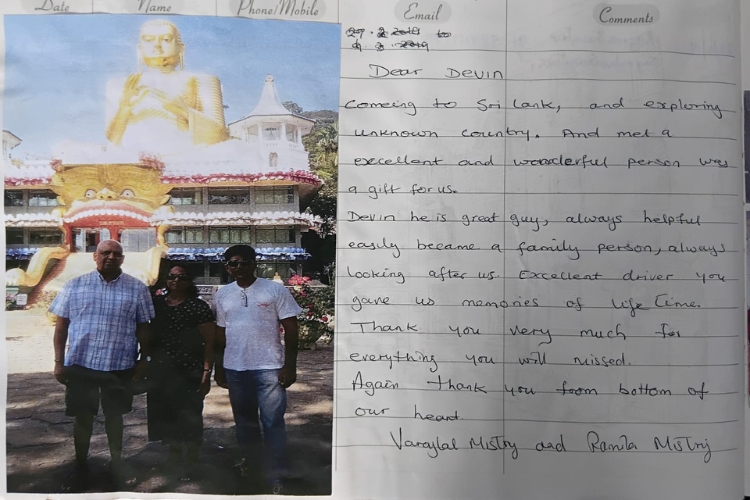 Date Name Phone/Mobile Email Comments
27.2.2019 to
9.3.2019
Dear Devin
Comeing to Sri Lank, and exploring
unknown country. And met a
excellent and wonderful person was
a gift for us.
Devin he is great guy, always helpful
easily became a family person, always
looking after us. Excellent driver you
gave us memories of life time.
Thank you very much for
everything you will missed.
Again thank you from bottom of
our heart
Varajlal Mistry and Ramila Mistry